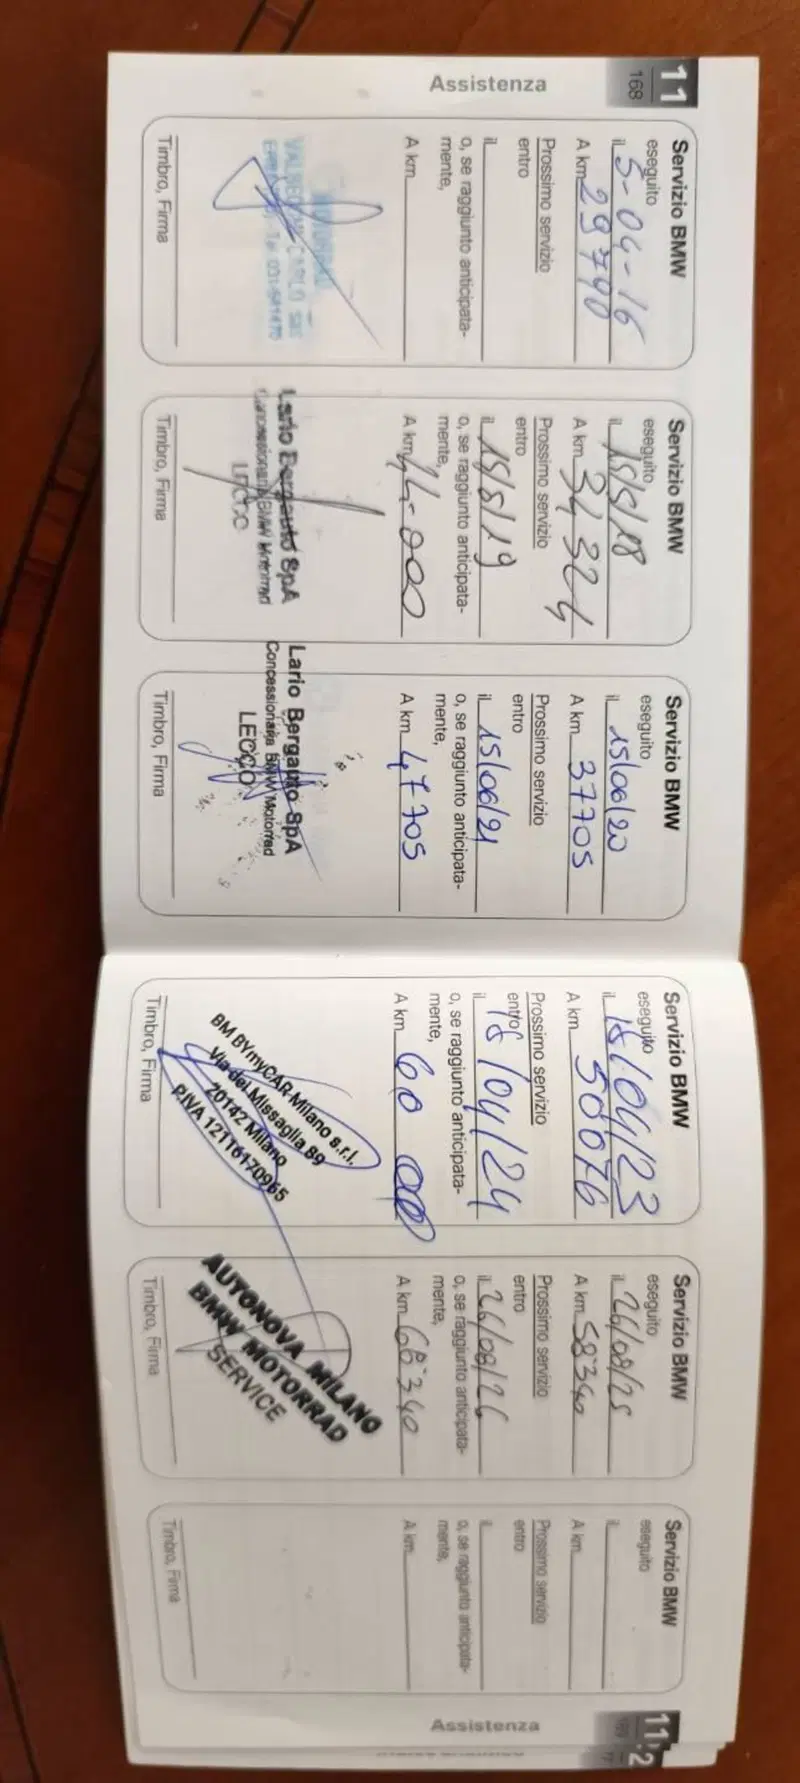 11
168
Assistenza
Servizio BMW
eseguito
il 5-04-16
A km 29790
Prossimo servizio
entro
il
o, se raggiunto anticipata-
mente,
A km
Timbro, Firma
Servizio BMW
eseguito
il 15/5/18
A km 34324
Prossimo servizio
entro
il 15/5/19
o, se raggiunto anticipata-
mente,
A km 44000
Lario Bergauto SpA
Concessionaria BMW Motorrad
LECCO
Timbro, Firma
Servizio BMW
eseguito
il 15/06/20
A km 37705
Prossimo servizio
entro
il 15/06/21
o, se raggiunto anticipata-
mente,
A km 47705
Lario Bergauto SpA
Concessionaria BMW Motorrad
LECCO
Timbro, Firma
Servizio BMW
eseguito
il 15/04/23
A km 50076
Prossimo servizio
entro
il 15/04/24
o, se raggiunto anticipata-
mente,
A km 60 000
BM BYmyCAR Milano s.r.l.
Via dei Missaglia 89
20142 Milano
P.IVA 12116170965
Timbro, Firma
Servizio BMW
eseguito
il 26/08/25
A km 58340
Prossimo servizio
entro
il 26/08/26
o, se raggiunto anticipata-
mente,
A km 68340
AUTONOVA MILANO
BMW MOTORRAD
SERVICE
Timbro, Firma
Servizio BMW
eseguito
il
A km
Prossimo servizio
entro
il
o, se raggiunto anticipata-
mente,
A km
Timbro, Firma
Assistenza
11